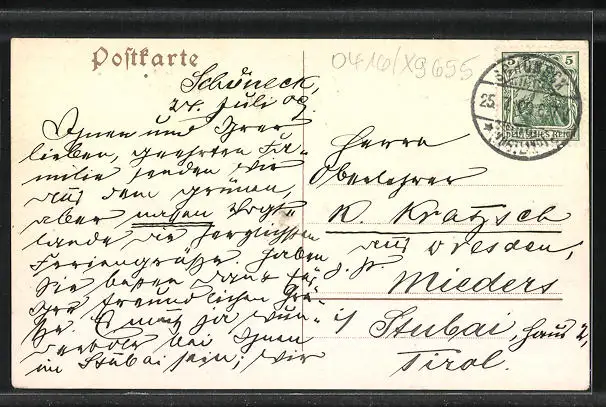 Postkarte
0416/X9655
Schöneck,
24. Juli 09.
Ihnen und Ihrer
lieben, geehrten Fa-
milie senden wir
aus dem grünen,
aber nassen Vogt-
lande die herzlichsten
Feriengrüße. Haben
Sie besten Dank für
Ihre freundlichen Grü-
ße. Es muß ja wun-
dervoll bei Ihnen
im Stubai sein; wir
5 5
SCHÖNECK
25. 7. 09
DEUTSCHES REICH
Herrn
Oberlehrer
K. Kratzsch
aus Dresden,
z. Zt. Mieders
i/ Stubai, Haus 2,
Tirol.